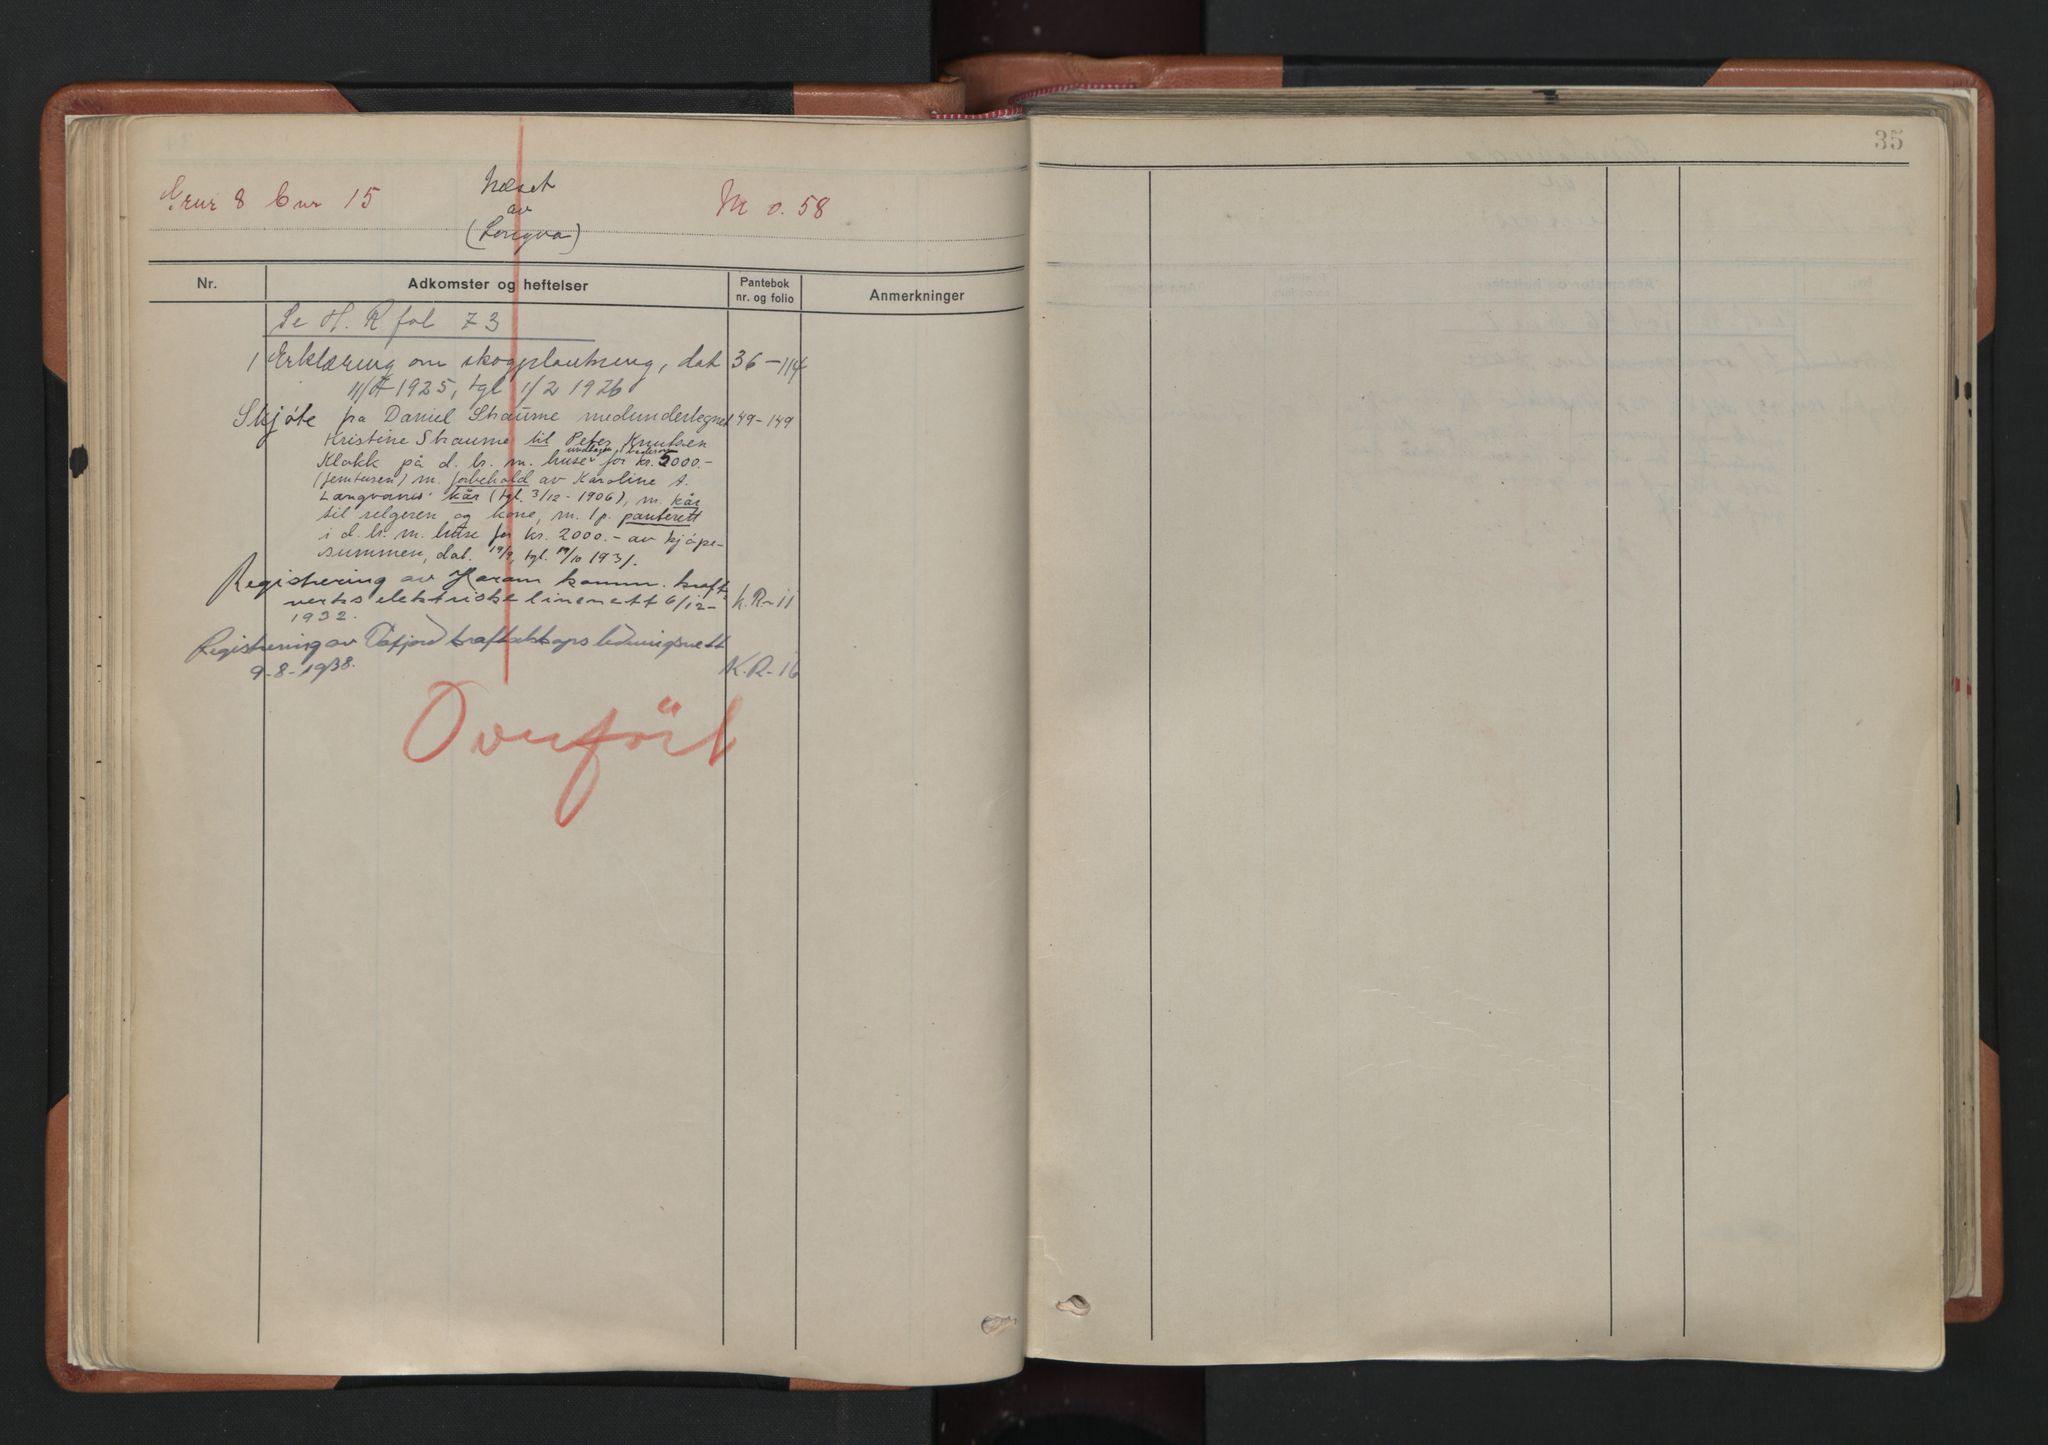 35
Gnr 8 bnr 15
Næset
M o. 58
av
(Longva)
Nr.
Adkomster og heftelser
Pantebok
nr. og folio
Anmerkninger
Se H. R fol 73
1 Erklæring om skogplantning, dat 36-114
1925, tgl 1/2 1926
Skjöte fra Daniel Straume medundertegnet 49-149
Kristine Straume til Peter Knutsen
Klokk på d. br. m. huse for kr. 5000.-
(femtusen) m. forbehold av Karoline A.
Langvanes kår (tgl. 3/12-1906), m. kår
til selgeren og kone, m. 1 p. panterett
i d. br. m. huse for kr. 2000.- av kjöpe-
summen, dat. 19/9, tgl. 19/10 1931.
Registrering av Haram komm. kraft-
verks elektriske linenett 6/12-
1932. K.R-11
Registrering av Tafjord kraftselskaps ledningsnett
9-8-1938. K.R-16
Overfört